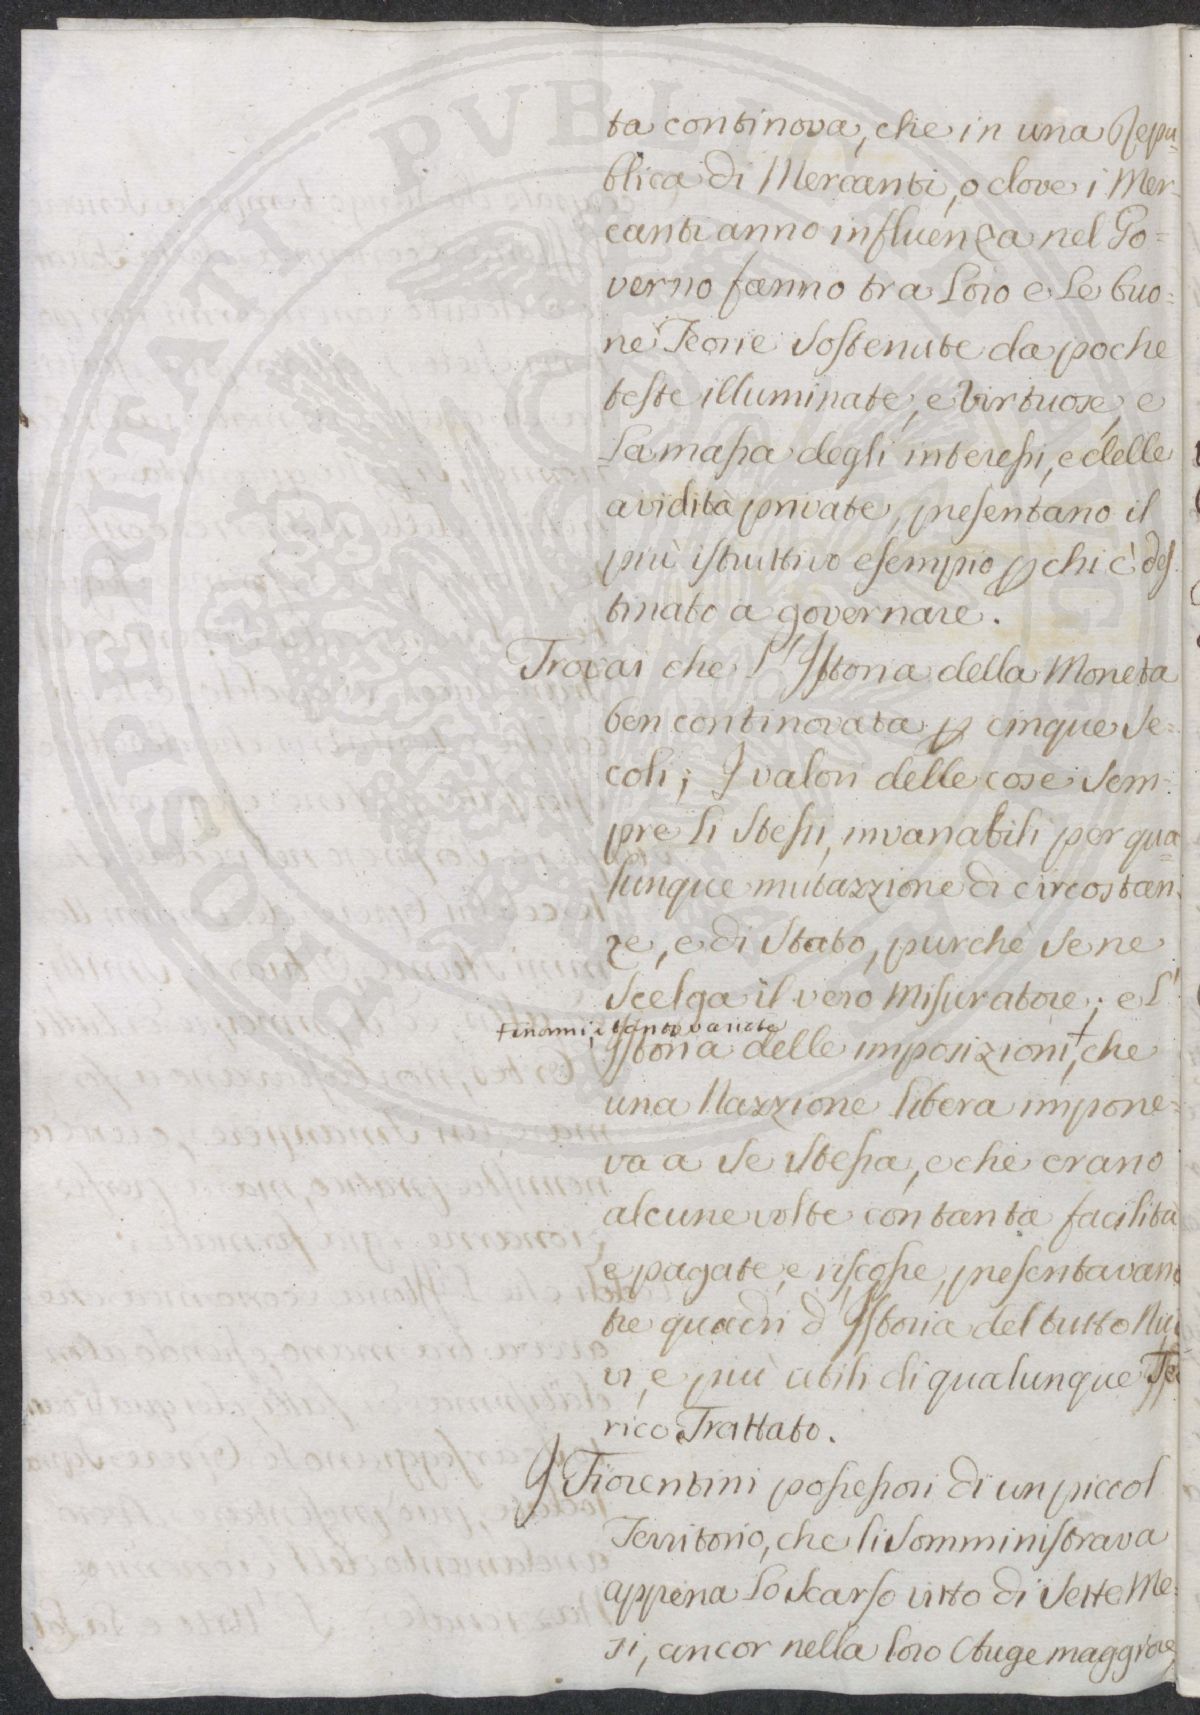 ta continova, che in una Repu=
blica di Mercanti, o dove i Mer=
canti anno influenza nel Go=
verno fanno tra Loro e Le buo=
ne Teorie sostenute da poche
teste illuminate, e virtuose, e
La massa degli interessi, e delle
avidità private, presentano il
più istruttivo esempio p chi è des=
tinato a governare.
Trovai che L'Istoria della Moneta
ben continovata p cinque se=
coli; I valori delle cose sem=
pre li stessi, invariabili per qua=
lunque mutazzione di circostan=
ze, e di stato, purchè se ne
scelga il vero Misuratore; e L'
+ inomi, e tanto variate
Istoria delle imposizioni +, che
una Nazzione libera impone=
va a se stessa, e che erano
alcune volte con tanta facilità
e pagate, e riscosse, presentavano
tre quadri d'Istoria del tutto Nuo
vi, e più utili di qualunque Teo
rico Trattato.
I Fiorentini possessori di un piccol
Territorio, che li somministrava
appena Lo scarso vitto di sette Me=
si, ancor nella loro Auge maggiore,
PROSPERITATI PVBLICAE